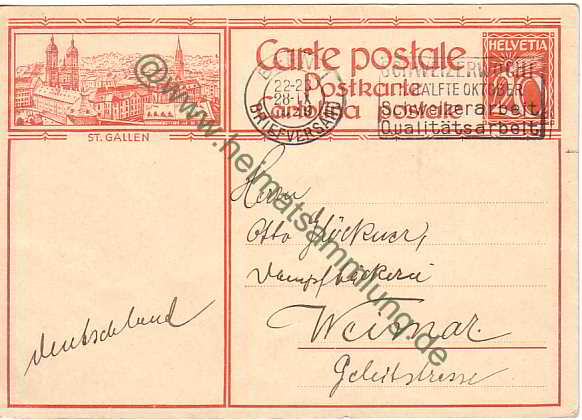 Carte postale
Postkarte
Cartolina postale
HELVETIA
ST. GALLEN
22-2
28.IX
BRIEFVERSAND
SCHWEIZERWOCHE
HÄLFTE OKTOBER
Schweizerarbeit
Qualitätsarbeit
Herrn
Otto Glöckner,
Dampfbäckerei
Weimar.
Geleitstrasse
Deutschland
@www.heimatsammlung.de